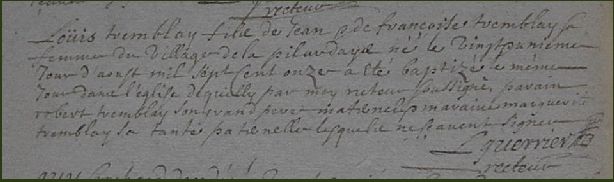 recteur
Loüis tremblay fils de Jean & de francoise tremblay sa
femme du village de la pilardaye né le vingtunieme
Jour d'aoust mil sept cent onze a eté baptizé le méme
Jour dans l'eglise de quilly par moy recteur soussigné, parain
robert tremblay son grand pere maternel & maraine marguerite
tremblay sa tante paternelle lesquels ne scavent signer
guerrier
recteur